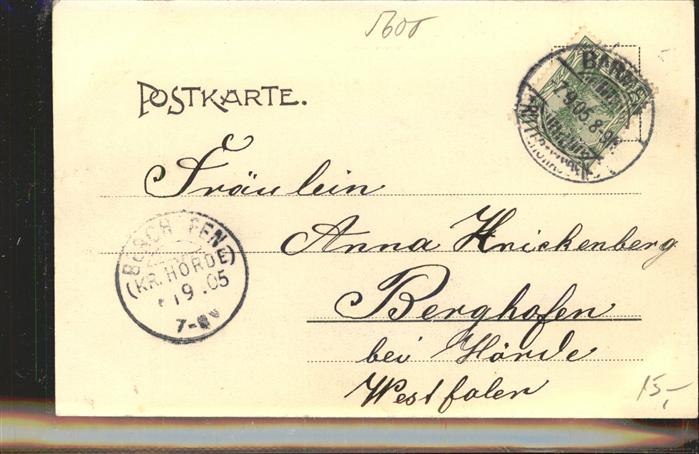 1500
POSTKARTE.
BARMEN
7.9.05.8-9
Fräulein
Anna Knickenberg
Berghofen
bei Hörde
Westfalen
(KR. HÖRDE)
9.05
15,-